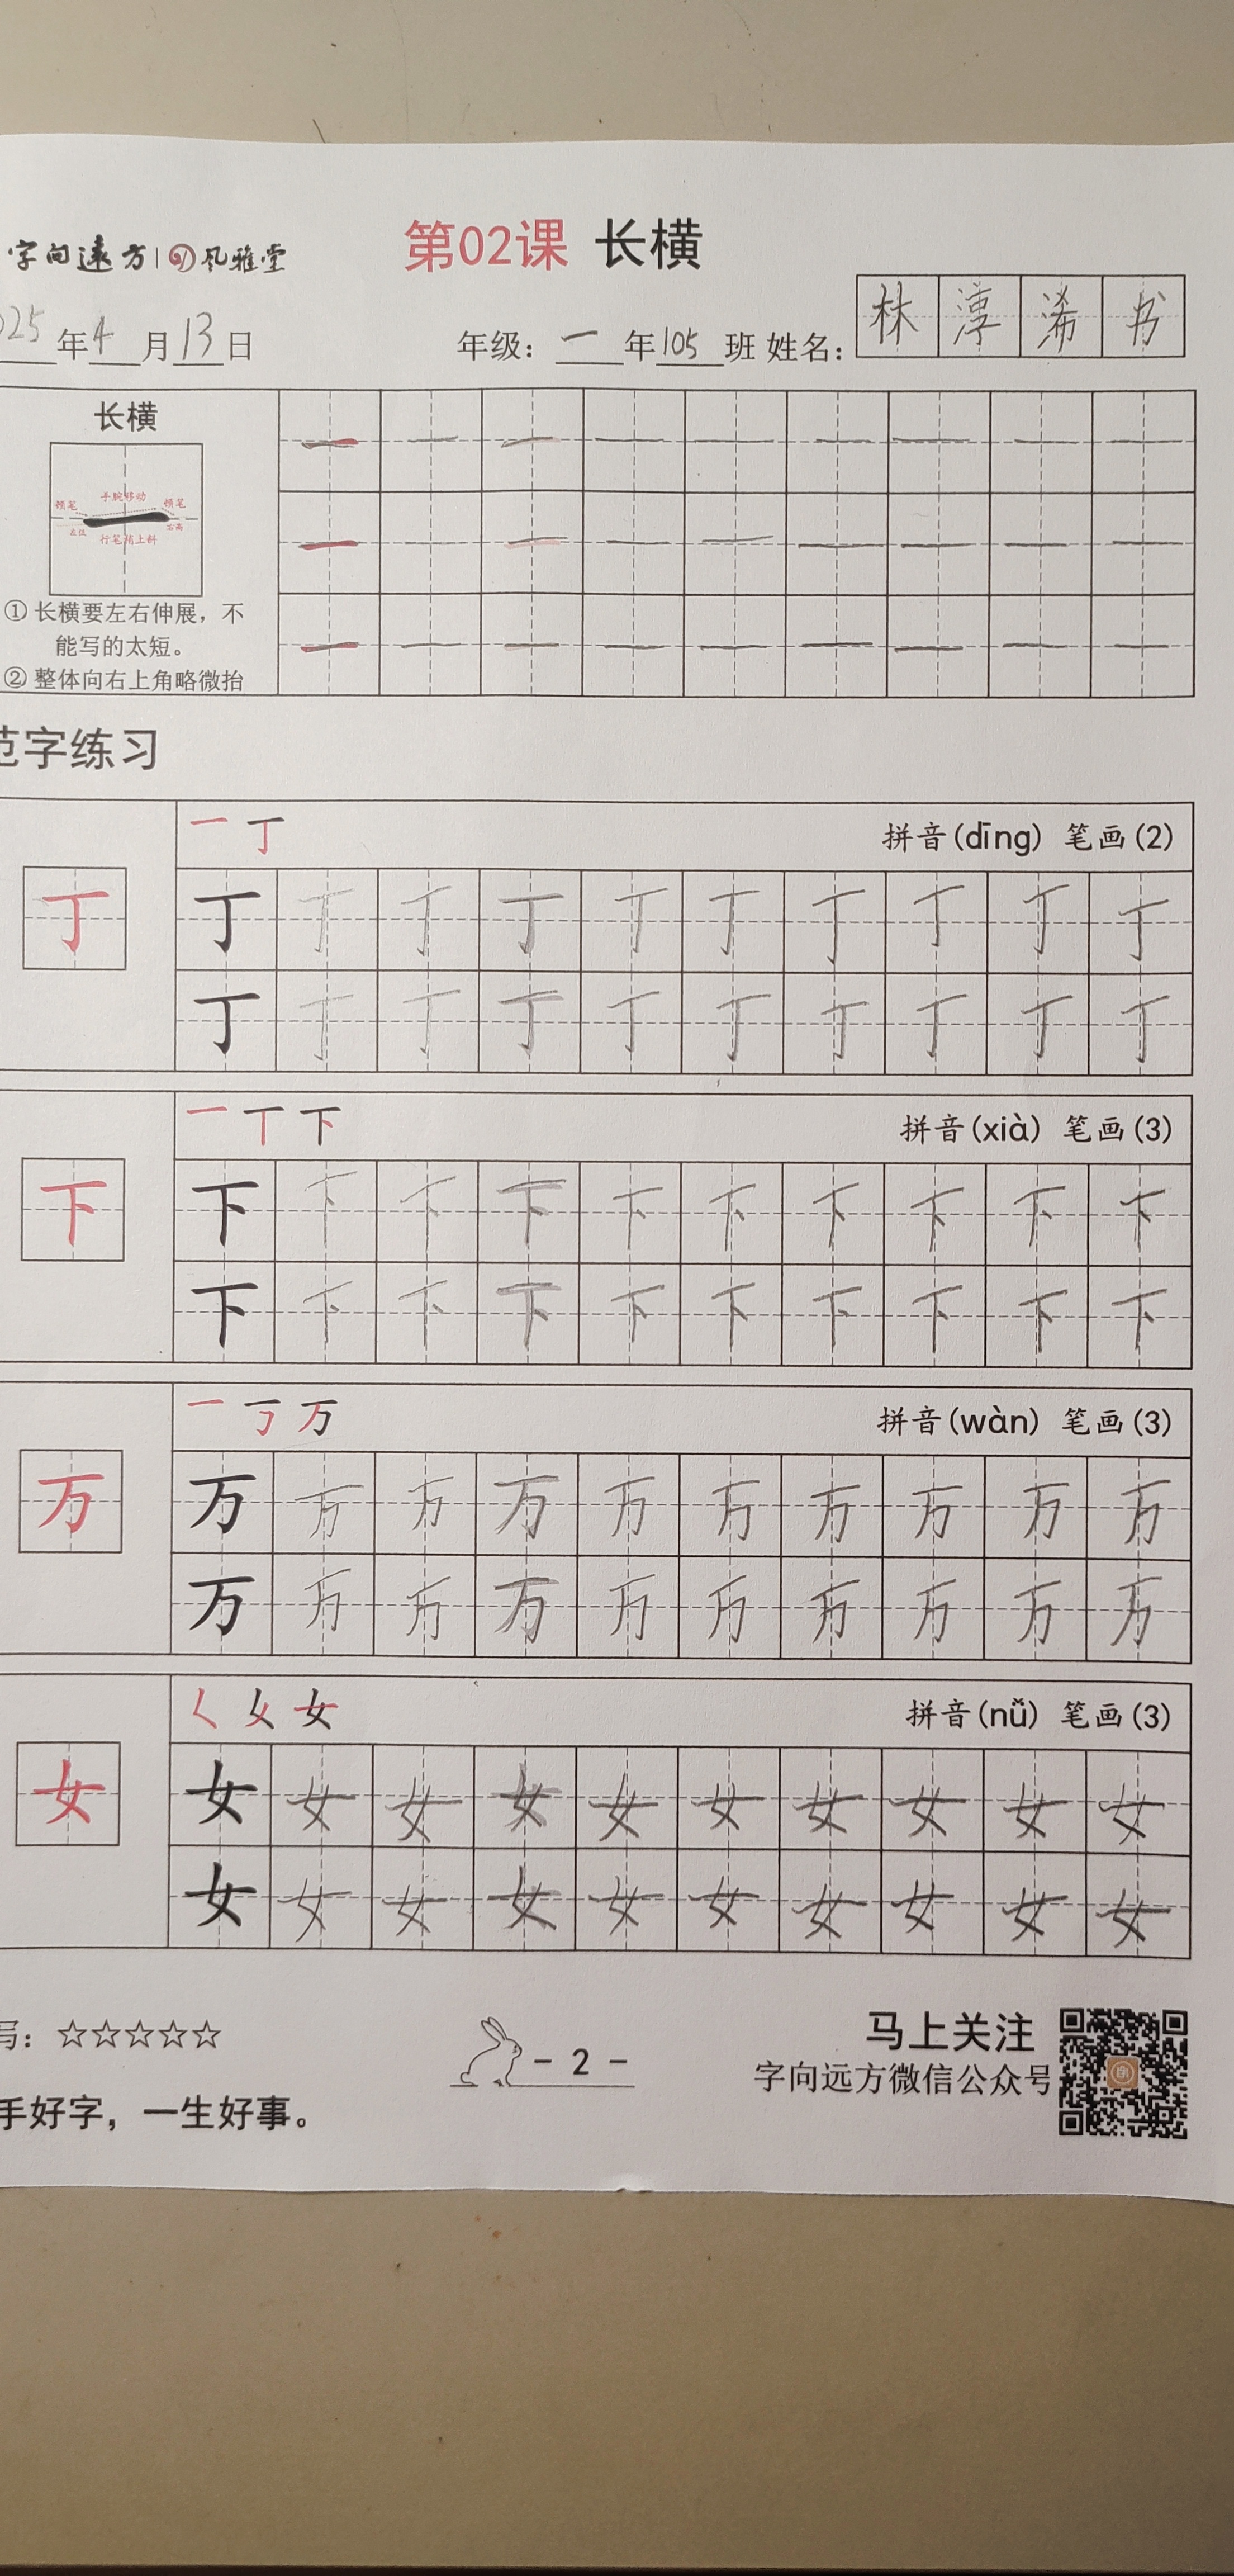 字向遠方 风雅堂
第02课 长横
25年4月13日 年级：一年105班 姓名：林淳浠书
长横
顿笔 手腕移动 顿笔
左低 右高
行笔稍上斜
① 长横要左右伸展，不
能写的太短。
② 整体向右上角略微抬
范字练习
一 丁 拼音(dīng) 笔画(2)
丁 丁 丁 丁 丁 丁 丁 丁 丁 丁 丁
丁 丁 丁 丁 丁 丁 丁 丁 丁 丁
一 丅 下 拼音(xià) 笔画(3)
下 下 下 下 下 下 下 下 下 下 下
下 下 下 下 下 下 下 下 下 下
一 丂 万 拼音(wàn) 笔画(3)
万 万 万 万 万 万 万 万 万 万 万
万 万 万 万 万 万 万 万 万 万
𡿨 乂 女 拼音(nǚ) 笔画(3)
女 女 女 女 女 女 女 女 女 女 女
女 女 女 女 女 女 女 女 女 女
写：☆☆☆☆☆
- 2 -
马上关注
字向远方微信公众号
手好字，一生好事。